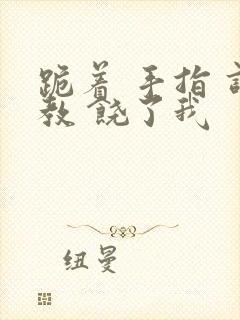 跪着 手指 调
教 饶了我
纽曼